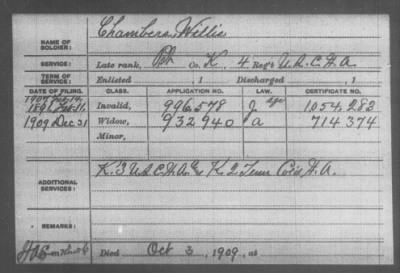 NAME OF SOLDIER: Chambers, Willis
SERVICE: Late rank, Pvt Co. K, 4 Reg't U.S.C.H.A.
TERM OF SERVICE: Enlisted , 1 Discharged , 1
DATE OF FILING. CLASS. APPLICATION NO. LAW. CERTIFICATE NO.
1907
1891 Invalid, 996.578 J age 1.054.283
1909 Dec 31 Widow, 932 940 a 714.374
Minor,
ADDITIONAL SERVICES: K. 3 U.S.C.H.A. & K. 2 Tenn Col'd H.A.
REMARKS:
Died Oct 3, 1909, at